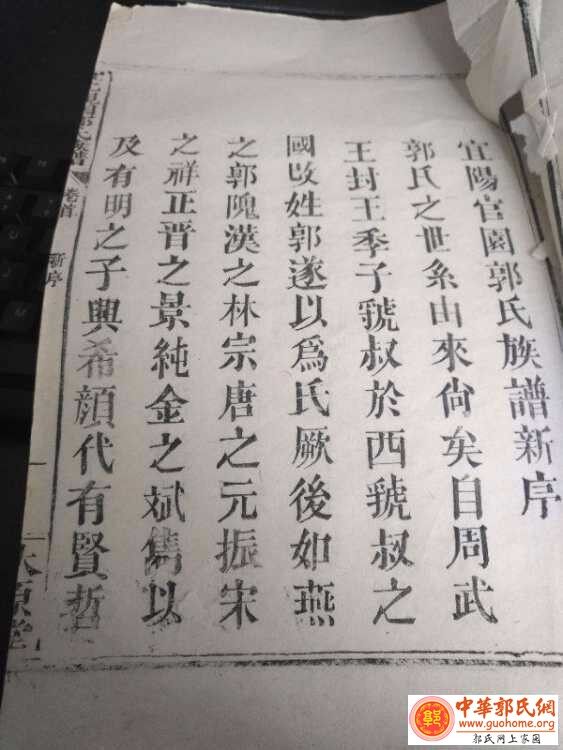 宜陽官園郭氏族譜新序
郭氏之世系由來尙矣自周武
王封王季子虢叔於西虢叔之
國改姓郭遂以爲氏厥後如燕
之郭隗漢之林宗唐之元振宋
之祥正晋之景純金之斌雋以
及有明之子興希顔代有賢哲
郭氏族譜
卷首
新序
太原堂
中華郭氏網
www.guohome.org
郭氏网上家園